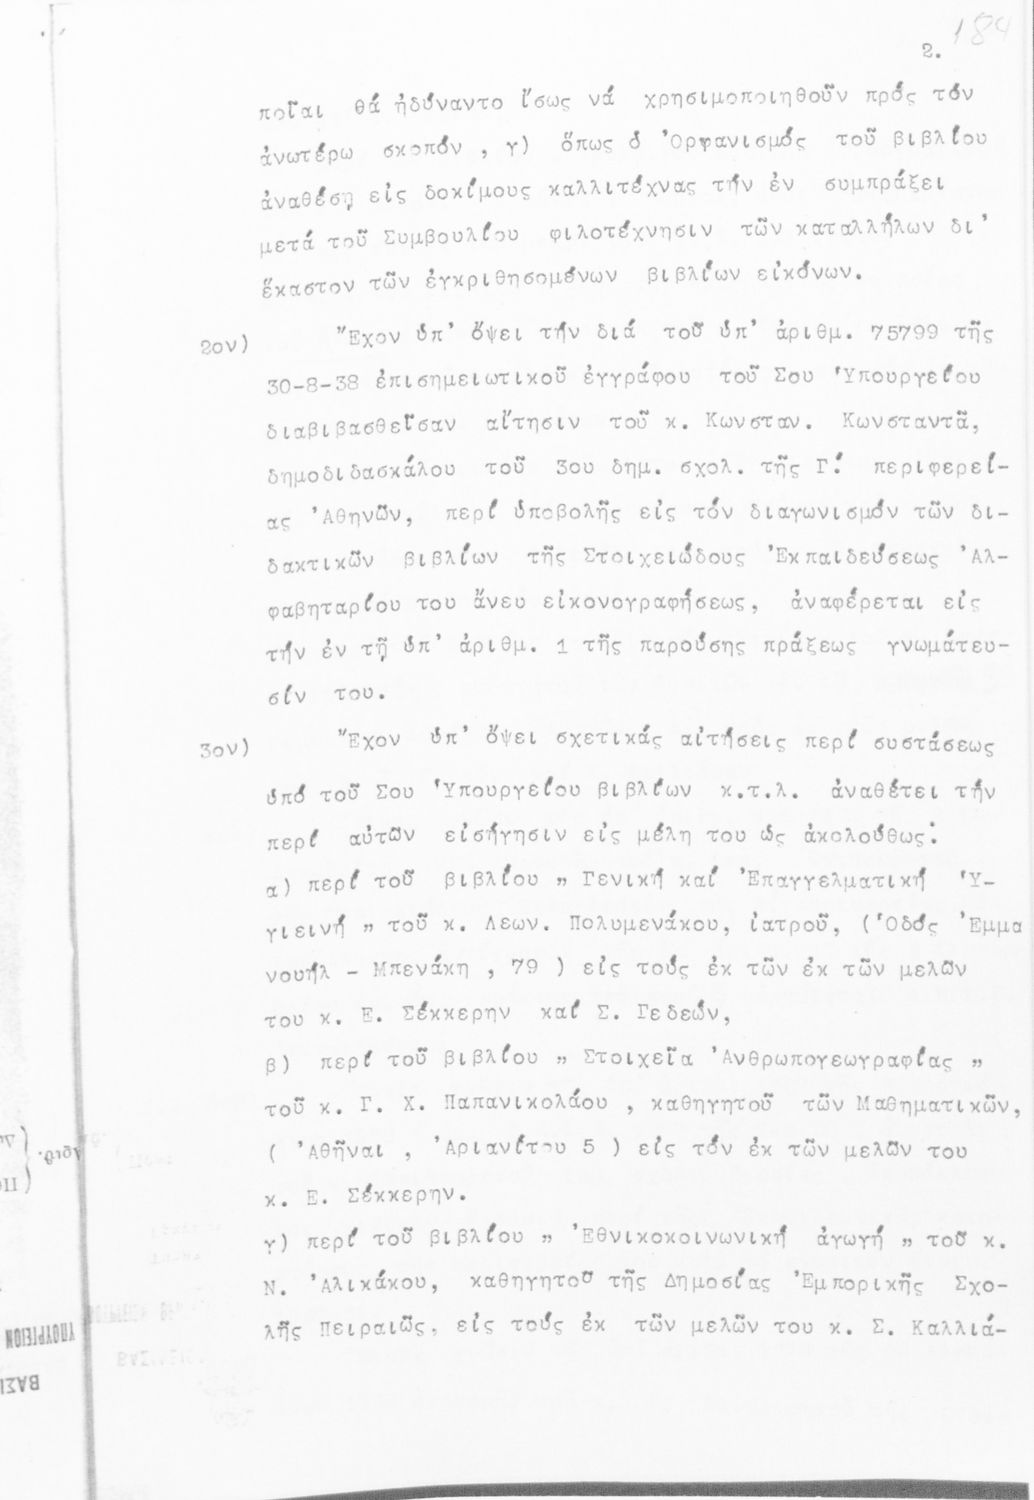 184
2.
ποῖαι θά ἠδύναντο ἴσως νά χρησιμοποιηθοῦν πρός τόν
ἀνωτέρω σκοπόν , γ) ὅπως ὁ Ὀργανισμός τοῦ βιβλίου
ἀναθέσῃ εἰς δοκίμους καλλιτέχνας τήν ἐν συμπράξει
μετά τοῦ Συμβουλίου φιλοτέχνησιν τῶν καταλλήλων δι'
ἕκαστον τῶν ἐγκριθησομένων βιβλίων εἰκόνων.
2ον) Ἔχον ὑπ' ὄψει τήν διά τοῦ ὑπ' ἀριθμ. 75799 τῆς
30-8-38 ἐπισημειωτικοῦ ἐγγράφου τοῦ Σου Ὑπουργείου
διαβιβασθεῖσαν αἴτησιν τοῦ κ. Κωνσταν. Κωνσταντᾶ,
δημοδιδασκάλου τοῦ 3ου δημ. σχολ. τῆς Γ΄. περιφερεί-
ας Ἀθηνῶν, περί ὑποβολῆς εἰς τόν διαγωνισμόν τῶν δι-
δακτικῶν βιβλίων τῆς Στοιχειώδους Ἐκπαιδεύσεως Ἀλ-
φαβηταρίου του ἄνευ εἰκονογραφήσεως, ἀναφέρεται εἰς
τήν ἐν τῇ ὑπ' ἀριθμ. 1 τῆς παρούσης πράξεως γνωμάτευ-
σίν του.
3ον) Ἔχον ὑπ' ὄψει σχετικάς αἰτήσεις περί συστάσεως
ὑπό τοῦ Σου Ὑπουργείου βιβλίων κ.τ.λ. ἀναθέτει τήν
περί αὐτῶν εἰσήγησιν εἰς μέλη του ὡς ἀκολούθως:
α) περί τοῦ βιβλίου „ Γενική καί Ἐπαγγελματική Ὑ-
γιεινή „ τοῦ κ. Λεων. Πολυμενάκου, ἰατροῦ, (Ὁδός Ἐμμα
νουήλ - Μπενάκη , 79 ) εἰς τούς ἐκ τῶν ἐκ τῶν μελῶν
του κ. Ε. Σέκκερην καί Σ. Γεδεών,
β) περί τοῦ βιβλίου „ Στοιχεῖα Ἀνθρωπογεωγραφίας „
τοῦ κ. Γ. Χ. Παπανικολάου , καθηγητοῦ τῶν Μαθηματικῶν,
( Ἀθῆναι , Ἀριανίτου 5 ) εἰς τόν ἐκ τῶν μελῶν του
κ. Ε. Σέκκερην.
γ) περί τοῦ βιβλίου „ Ἐθνικοκοινωνική ἀγωγή „ τοῦ κ.
Ν. Ἀλικάκου, καθηγητοῦ τῆς Δημοσίας Ἐμπορικῆς Σχο-
λῆς Πειραιῶς, εἰς τούς ἐκ τῶν μελῶν του κ. Σ. Καλλιά-
ΥΠΟΥΡΓΕΙΟΝ
ΒΑΣΙ